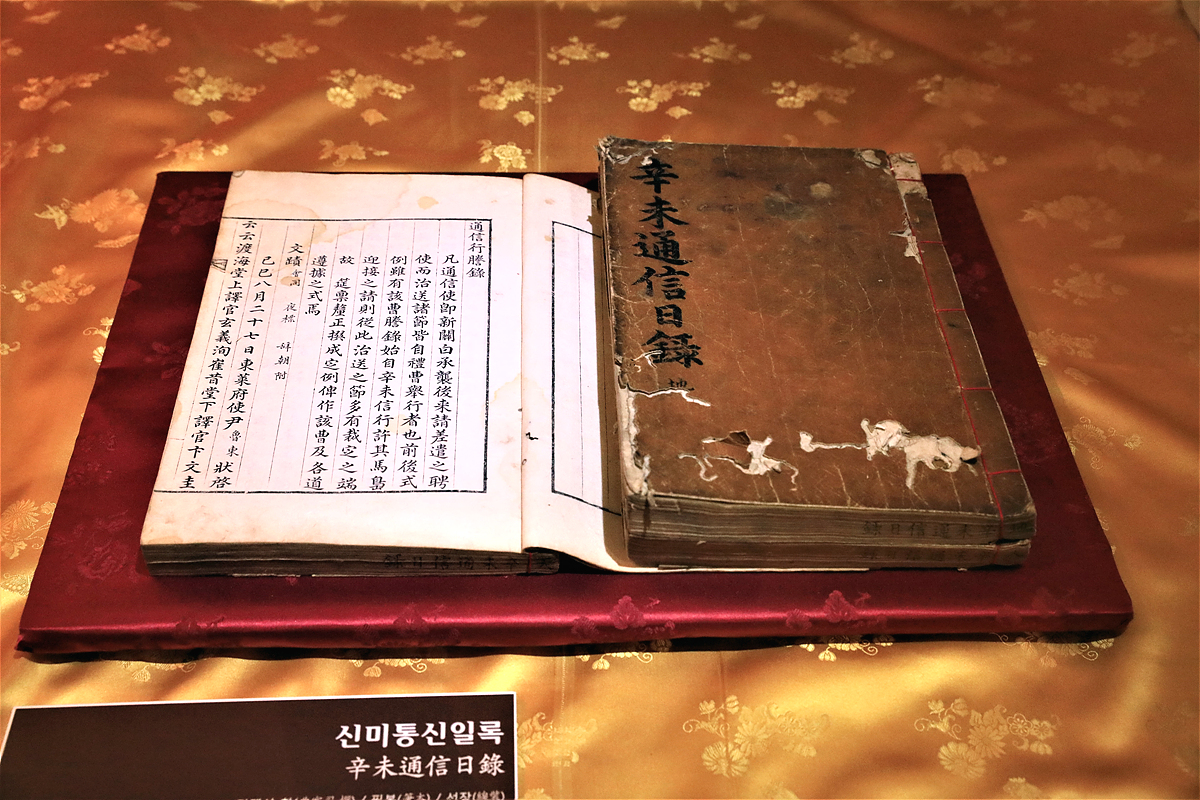 通信行謄錄
凡通信使卽新關白承襲後來請差遣之聘
使而治送諸節皆自禮曹擧行者也前後式
例雖有該曹謄錄始自辛未信行許其馬島
迎接之請則從此治送之節多有裁定之端
故 筵稟釐正撰成定例俾作該曹及各道
遵據之式焉
文蹟
己巳八月二十七日東萊府使尹魯東狀啓
云云渡海堂上譯官玄義洵崔昔堂下譯官卞文圭
辛未通信日錄
地
신미통신일록
辛未通信日錄